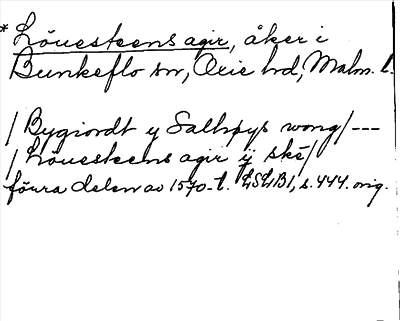 * Löuesteens agir, åker i
Bunkeflo sn, Oxie hd, Malm. l.
/ Bygiordt y Saltzpys wong / ---
/ Löuesteens agir ij skē /
förra delen av 1570-t. LSLB1, s. 444. orig.